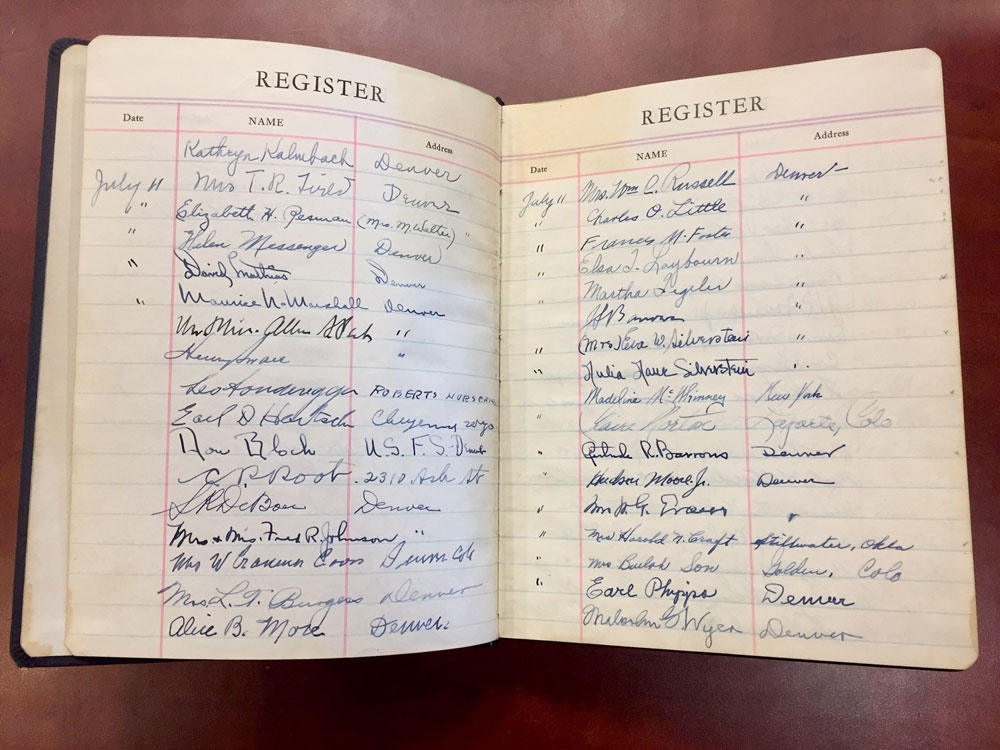 REGISTER
Date NAME Address
Kathryn Kalmbach Denver
July 11 Mrs T. R. Field Denver
" Elizabeth H. Pesman (Mrs. M. Walter) "
" Helen Messenger Denver
" David Mathias Denver
" Maurice N. Marshall Denver
Mr & Mrs. Allen S. "
Henry "
Leo Sonderegger ROBERTS NURSERIES
Earl D Hartsch Cheyenne Wyo
Don Bloch U.S.F.S. Denver
C. P. Root 2310 Ash St
S. R. DeBoer Denver
Mrs & Mrs. Fred R. Johnson "
Mrs W Denver Colo
Mrs. L. T. Burgess Denver
Alice B. More Denver.
REGISTER
Date NAME Address
July 11 Mrs. Wm C. Russell Denver
Charles O. Little "
" Frances M. Foster "
" Elsa J. Laybourn
" Martha "
Barrows "
" (Mrs) Eva W. Silverstein "
" Silverstein "
Madeline McWhinney New York
" Claire Norton Laporte, Colo
" Gertrude R. Barrows Denver
" Hudson Moore Jr. Denver
" Mrs H. G. "
" Mrs Harold N. Craft Stillwater, Okla
" Mrs Beulah Son Golden, Colo
" Earl Phipps Denver
Malcolm G Wyer Denver